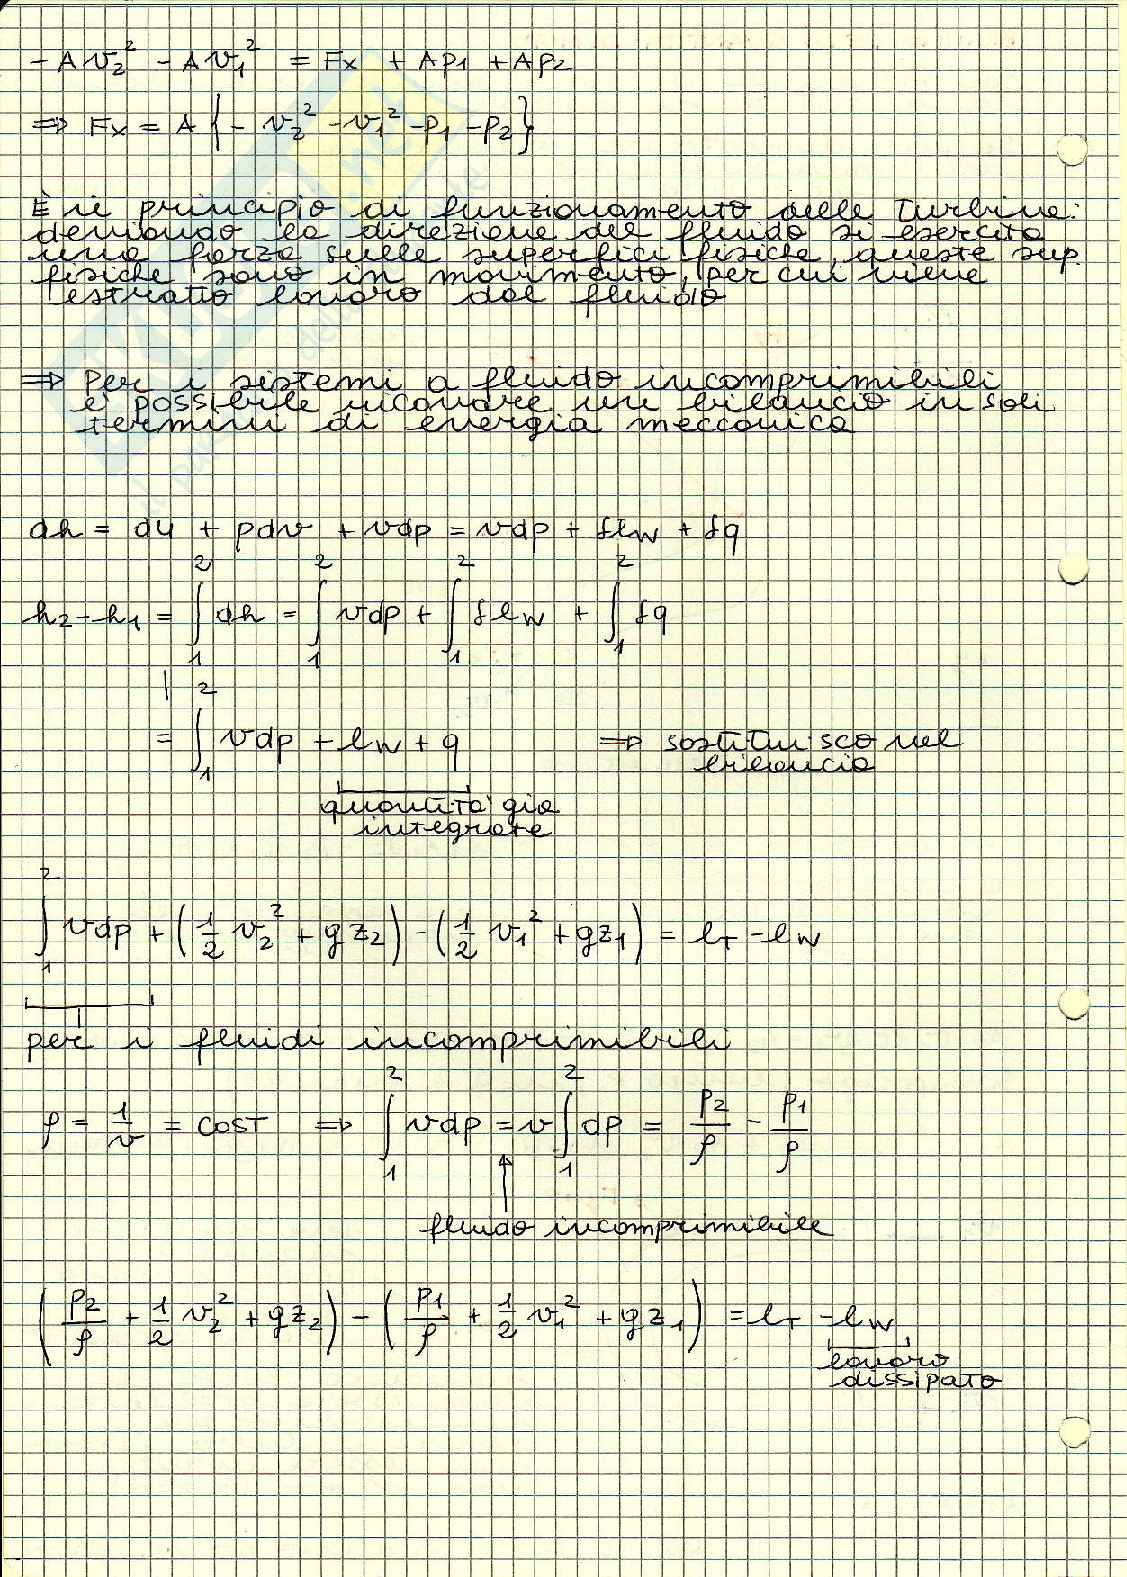 - A v₂² - A v₁² = Fx + Ap₁ + Ap₂
⇒ Fx = A { - v₂² - v₁² - p₁ - p₂ }
È il principio di funzionamento delle turbine:
deviando la direzione del fluido si esercita
una forza sulle superfici fisiche, queste sup.
fisiche sono in movimento, per cui viene
estratto lavoro dal fluido
⇒ Per i sistemi a fluido incomprimibili
è possibile ricavare un bilancio in soli
termini di energia meccanica
dh = du + pdv + vdp = vdp + δlw + δq
h₂ - h₁ = ∫₁² dh = ∫₁² vdp + ∫₁² δlw + ∫₁² δq
= ∫₁² vdp + lw + q ⇒ sostituisco nel
bilancio
quantità già
integrate
∫₁² vdp + (1/2 v₂² + gz₂) - (1/2 v₁² + gz₁) = lT - lw
per i fluidi incomprimibili
ρ = 1/v = COST ⇒ ∫₁² vdp = v ∫₁² dp = p₂/ρ - p₁/ρ
fluido incomprimibile
(p₂/ρ + 1/2 v₂² + gz₂) - (p₁/ρ + 1/2 v₁² + gz₁) = lT - lw
lavoro
dissipato